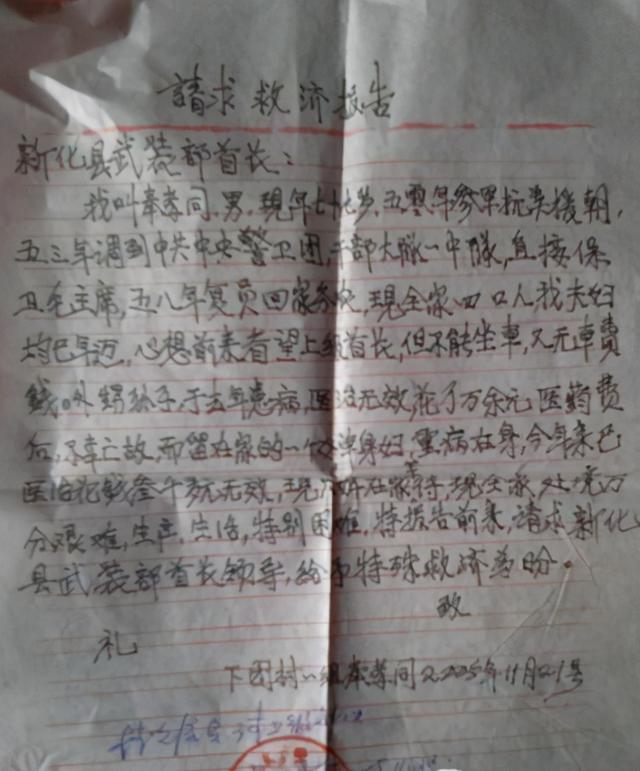 請求救济报告
新化县武装部首长：
我叫奉孝同，男，现年七十七岁，五零年参军抗美援朝，
五三年调到中共中央警卫团，干部大队一中隊，直接保
卫毛主席，五八年复员回家务农，现全家四口人我夫妇
均已年迈，心想前来看望上级首长，但不能坐車，又无車費
钱。外甥孙子于去年患病，医治无效，花了万余元医药费
后，不幸亡故，而留在家的一个单身妇，重病在身，今年来已
医治花钱叁千多元无效，现在家待，现全家处境万
分艰难，生产，生活，特别困难，特报告前来，請求新化
县武装部首长领导，给予特殊救济为盼。
致
礼
下团村一组奉孝同 2005年11月21号